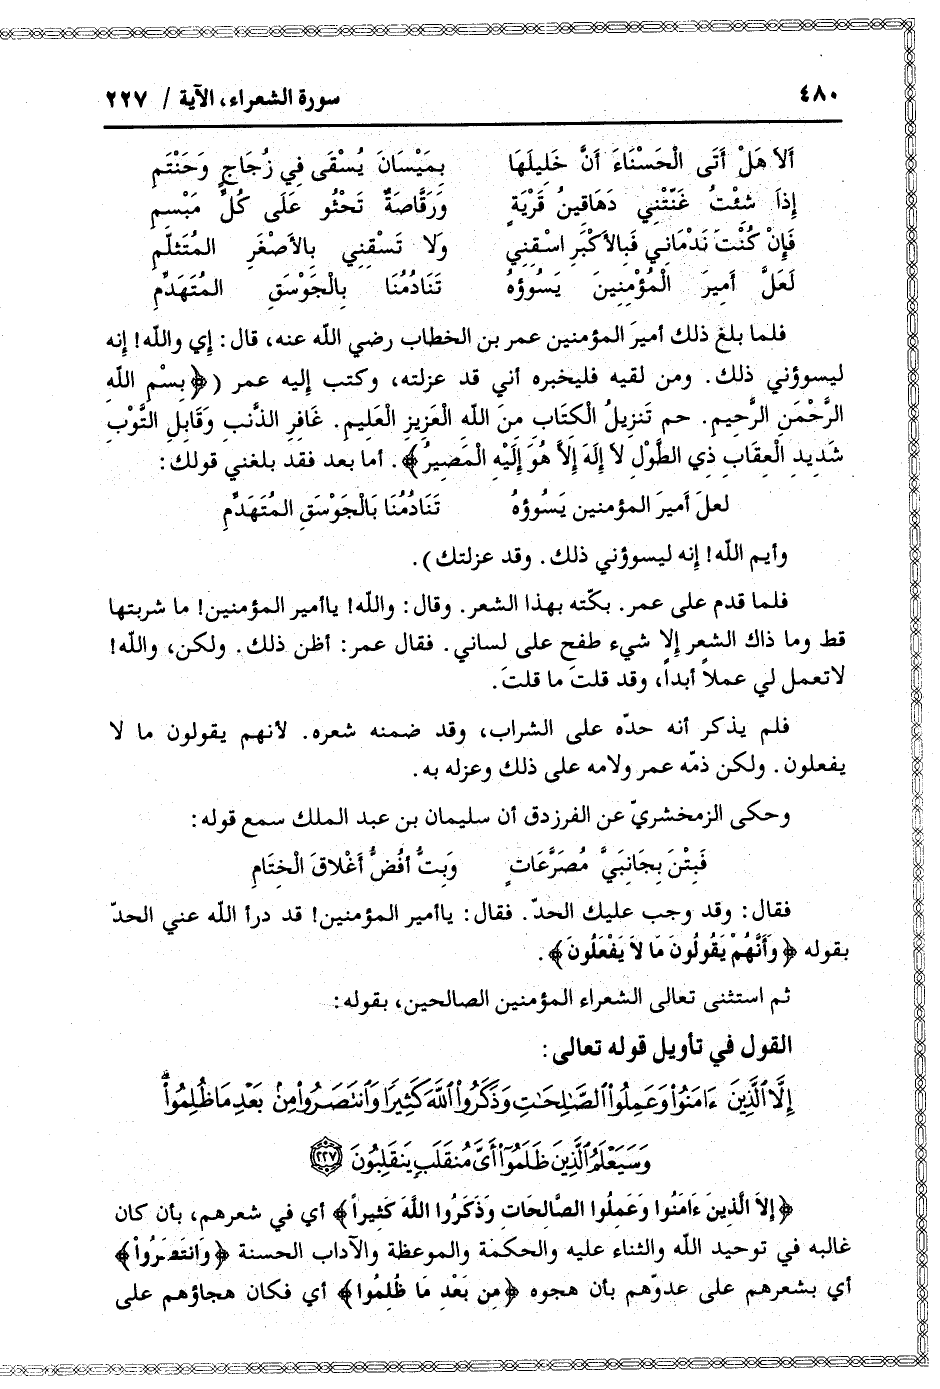 ٤٨٠ سورة الشعراء، الآية / ٢٢٧
أَلاَ هَلْ أَتَى الْحَسْنَاءَ أَنَّ خَلِيلَهَا بِمَيْسَانَ يُسْقَى فِي زُجَاجٍ وَحَنْتَمِ
إِذَا شئْتُ غَنَّتْنِي دَهَاقينُ قَرْيَةٍ وَرَقَّاصَةٌ تَحْثُو عَلَى كُلِّ مَبْسِمِ
فَإِنْ كُنْتَ نَدْمَانِي فَبالأَكْبَرِ اسْقِنِي وَلا تَسْقِنِي بِالأَصْغَرِ المُتَثَلّمِ
لَعَلَّ أَمِيرَ الْمُؤْمِنِينَ يَسُوؤهُ تَنَادُمُنَا بِالْجَوْسَقِ المُتَهَدِّمِ
فلما بلغ ذلك أميرَ المؤمنين عمر بن الخطاب رضي الله عنه، قال: إي والله! إنه
ليسوؤني ذلك. ومن لقيه فليخبره أني قد عزلته، وكتب إليه عمر (﴿بِسْمِ اللهِ
الرَّحْمَنِ الرَّحِيمِ. حم تَنزِيلُ الْكتَابِ منَ الله الْعَزِيزِ الْعَليمِ. غَافِرِ الذَّنبِ وَقَابِلِ التَّوْبِ
شَدِيدِ الْعِقَابِ ذِي الطَّوْلِ لاَ إِلَهَ إِلاَّ هُوَ إِلَيْهِ الْمَصِيرُ﴾. أما بعد فقد بلغني قولك:
لعلَ أميرَ المؤمنين يَسُوؤهُ تَنَادُمُنَا بَالْجَوْسَقِ المُتَهَدِّمِ
وأيم الله! إنه ليسوؤني ذلك. وقد عزلتك).
فلما قدم على عمر. بكّته بهذا الشعر. وقال: والله! ياأمير المؤمنين! ما شربتها
قط وما ذاك الشعر إلا شيء طفح على لساني. فقال عمر: أظن ذلك. ولكن، والله!
لاتعمل لي عملاً أبداً، وقد قلتَ ما قلتَ.
فلم يذكر أنه حدّه على الشراب، وقد ضمنه شعره. لأنهم يقولون ما لا
يفعلون. ولكن ذمّه عمر ولامه على ذلك وعزله به.
وحكى الزمخشريّ عن الفرزدق أن سليمان بن عبد الملك سمع قوله:
فَبِتْنَ بِجَانِبَيَّ مُصَرَّعَاتٍ وَبَتُّ أفُضُّ أَغْلاقَ الْخِتَامِ
فقال: وقد وجب عليك الحدّ. فقال: ياأمير المؤمنين! قد درأ الله عني الحدّ
بقوله ﴿وَأَنَّهُمْ يَقُولُونَ مَا لاَ يَفْعَلُونَ﴾.
ثم استثنى تعالى الشعراء المؤمنين الصالحين، بقوله:
القول في تأويل قوله تعالى:
إِلَّا ٱلَّذِينَ ءَامَنُوا۟ وَعَمِلُوا۟ ٱلصَّـٰلِحَـٰتِ وَذَكَرُوا۟ ٱللَّهَ كَثِيرًا وَٱنتَصَرُوا۟ مِنۢ بَعْدِ مَا ظُلِمُوا۟ۗ
وَسَيَعْلَمُ ٱلَّذِينَ ظَلَمُوٓا۟ أَىَّ مُنقَلَبٍ يَنقَلِبُونَ ٢٢٧
﴿إِلاَ الَّذِينَ ءَامَنُوا وَعَمِلُوا الصَّالِحَاتِ وَذَكَرُوا اللَّهَ كَثيراً﴾ أي في شعرهم، بأن كان
غالبه في توحيد الله والثناء عليه والحكمة والموعظة والآداب الحسنة ﴿وَانتَصَرُواْ﴾
أي بشعرهم على عدوّهم بأن هجوه ﴿مِن بَعْدِ مَا ظُلِمُوا﴾ أي فكان هجاؤهم على